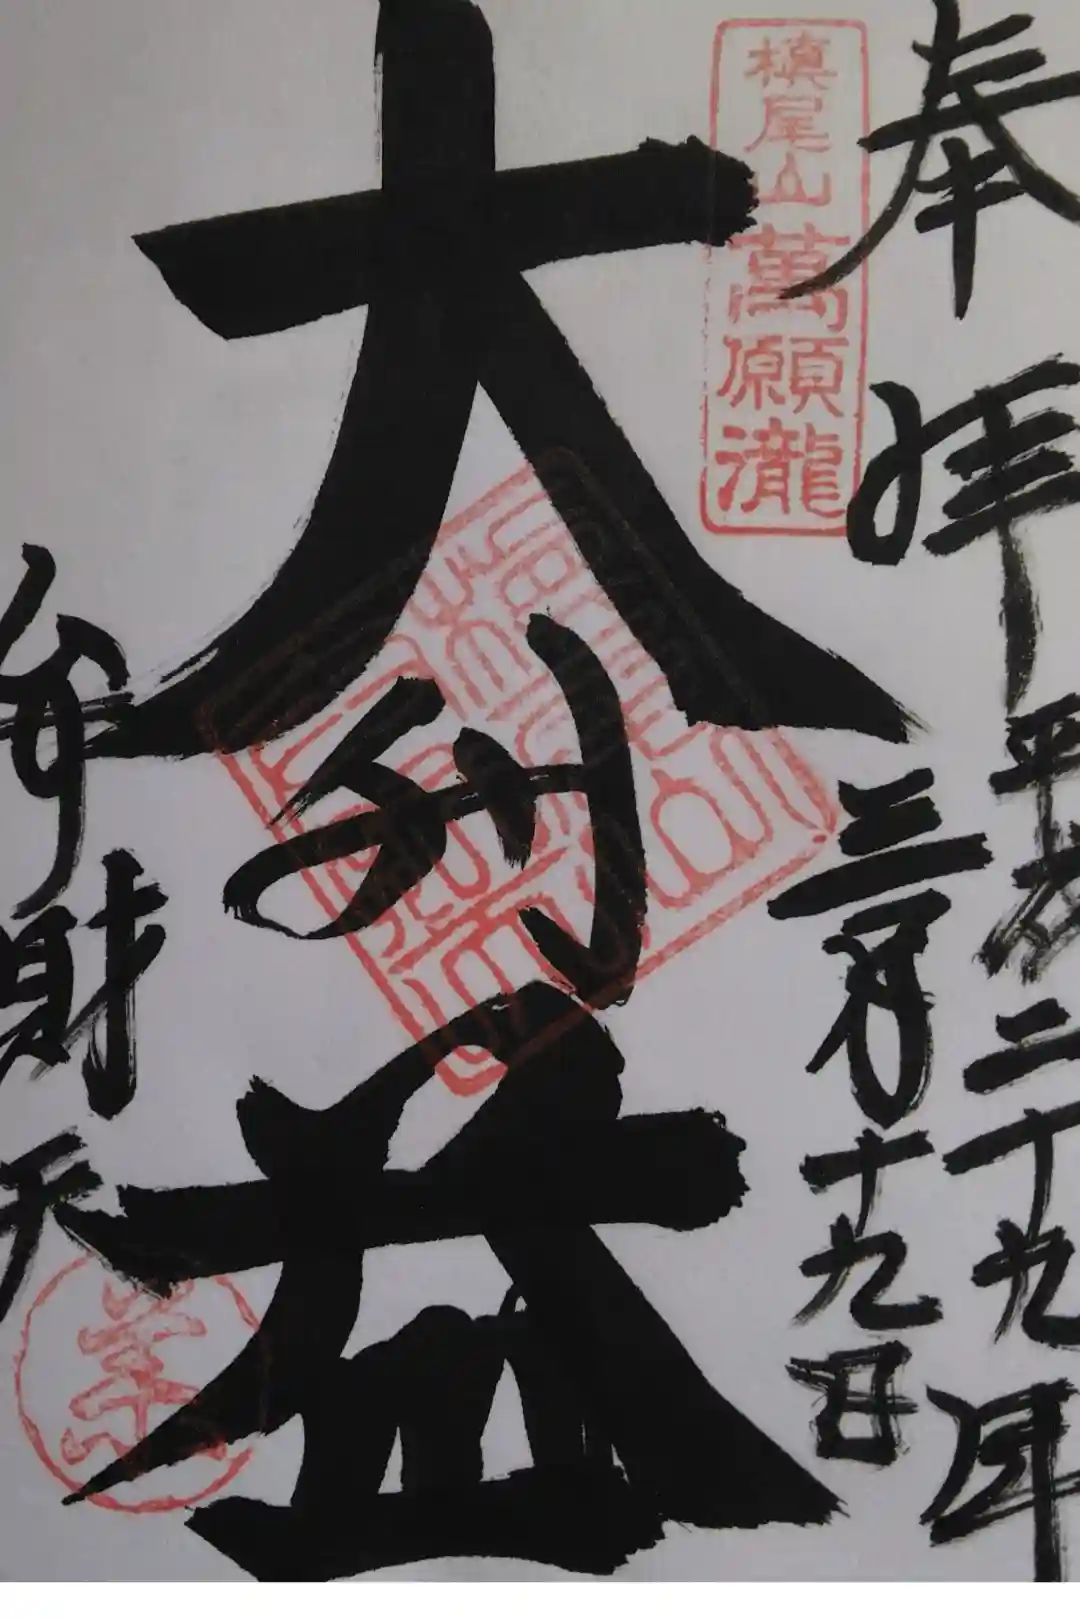 奉拝
平成二十九年
三月十九日
槇尾山萬願瀧
大利益
弁財天